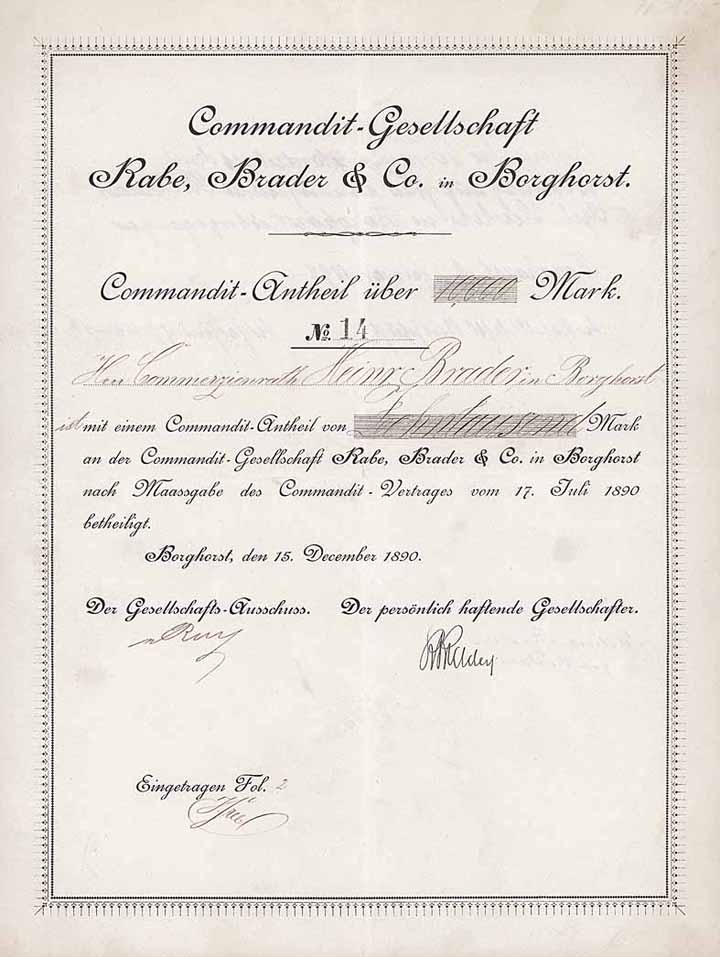 Commandit-Gesellschaft
Rabe, Brader & Co. in Borghorst.
Commandit-Antheil über 10,000 Mark.
No. 14
Herr Commerzienrath Heinr. Brader in Borghorst
ist mit einem Commandit-Antheil von Zehntausend Mark
an der Commandit-Gesellschaft Rabe, Brader & Co. in Borghorst
nach Maassgabe des Commandit-Vertrages vom 17. Juli 1890
betheiligt.
Borghorst, den 15. December 1890.
Der Gesellschafts-Ausschuss. Der persönlich haftende Gesellschafter.
Eingetragen Fol. 2